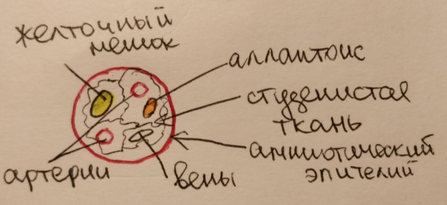 желточный
мешок
аллантоис
студенистая
ткань
амниотический
эпителий
артерии
вены